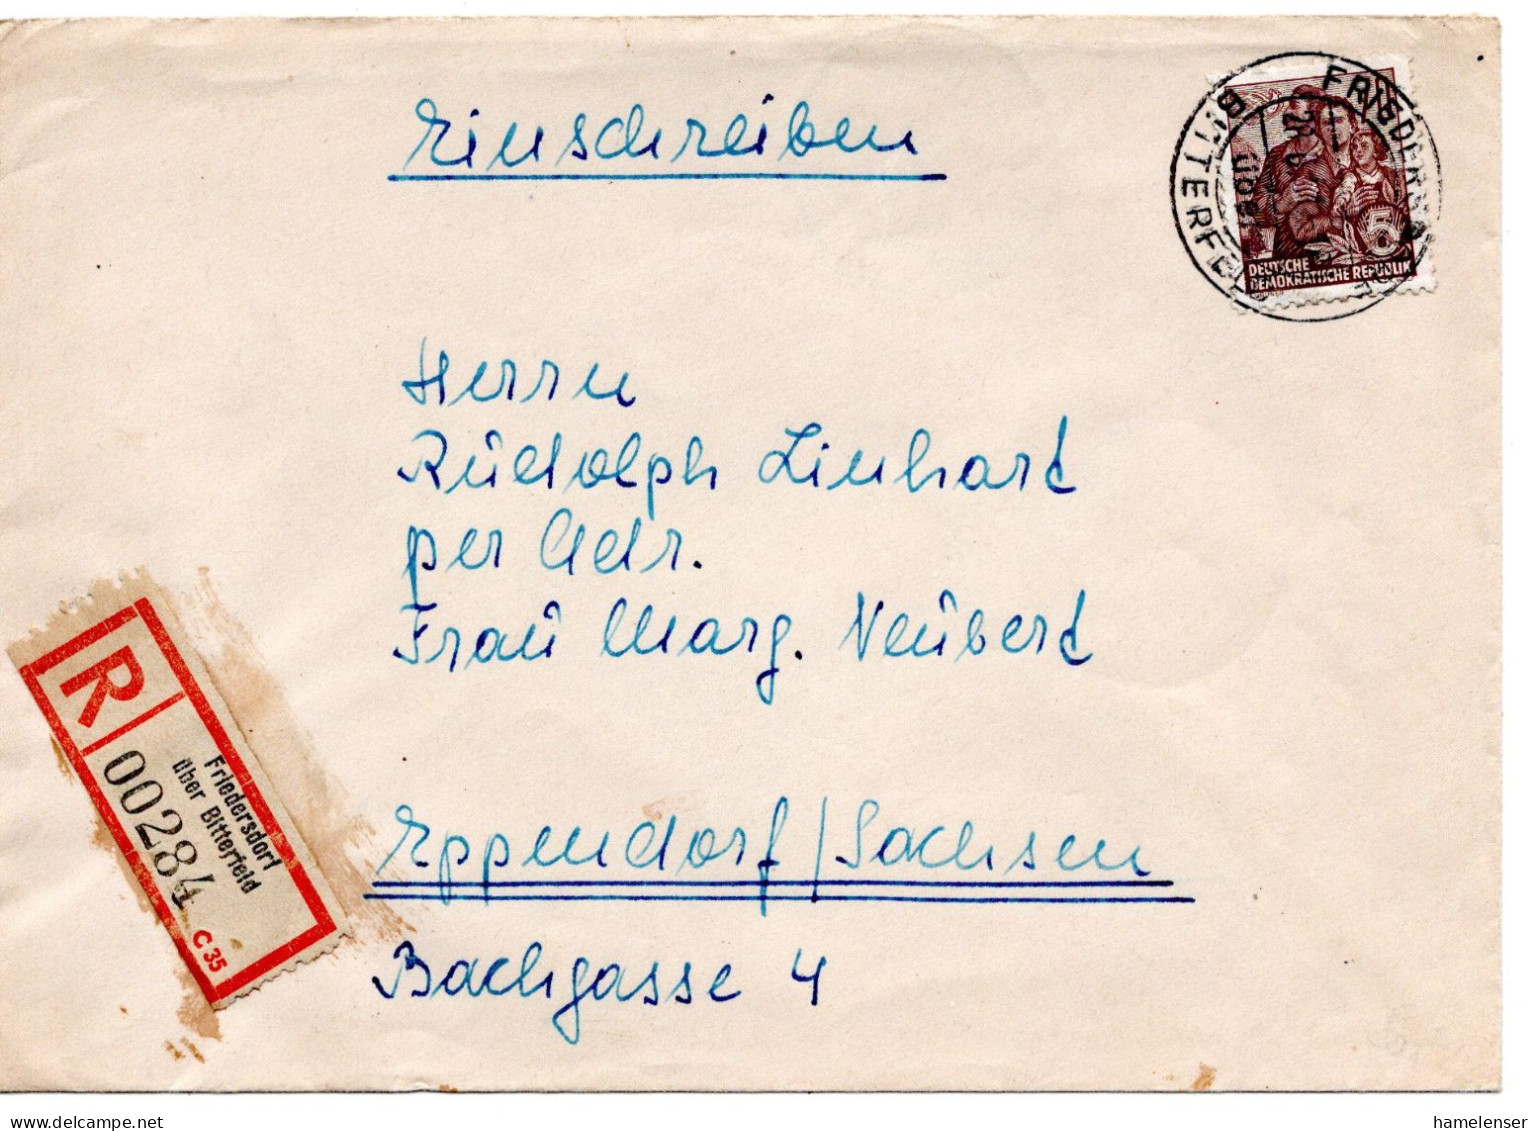 Einschreiben
BITTERFELD
über
5
DEUTSCHE
DEMOKRATISCHE REPUBLIK
Herrn
Rudolph Linhart
per Adr.
Frau Marg. Neubert
Eppendorf / Sachsen
Bachgasse 4
R
Friedersdorf
über Bitterfeld
00284
C 35
delcampe.net
hamelenser